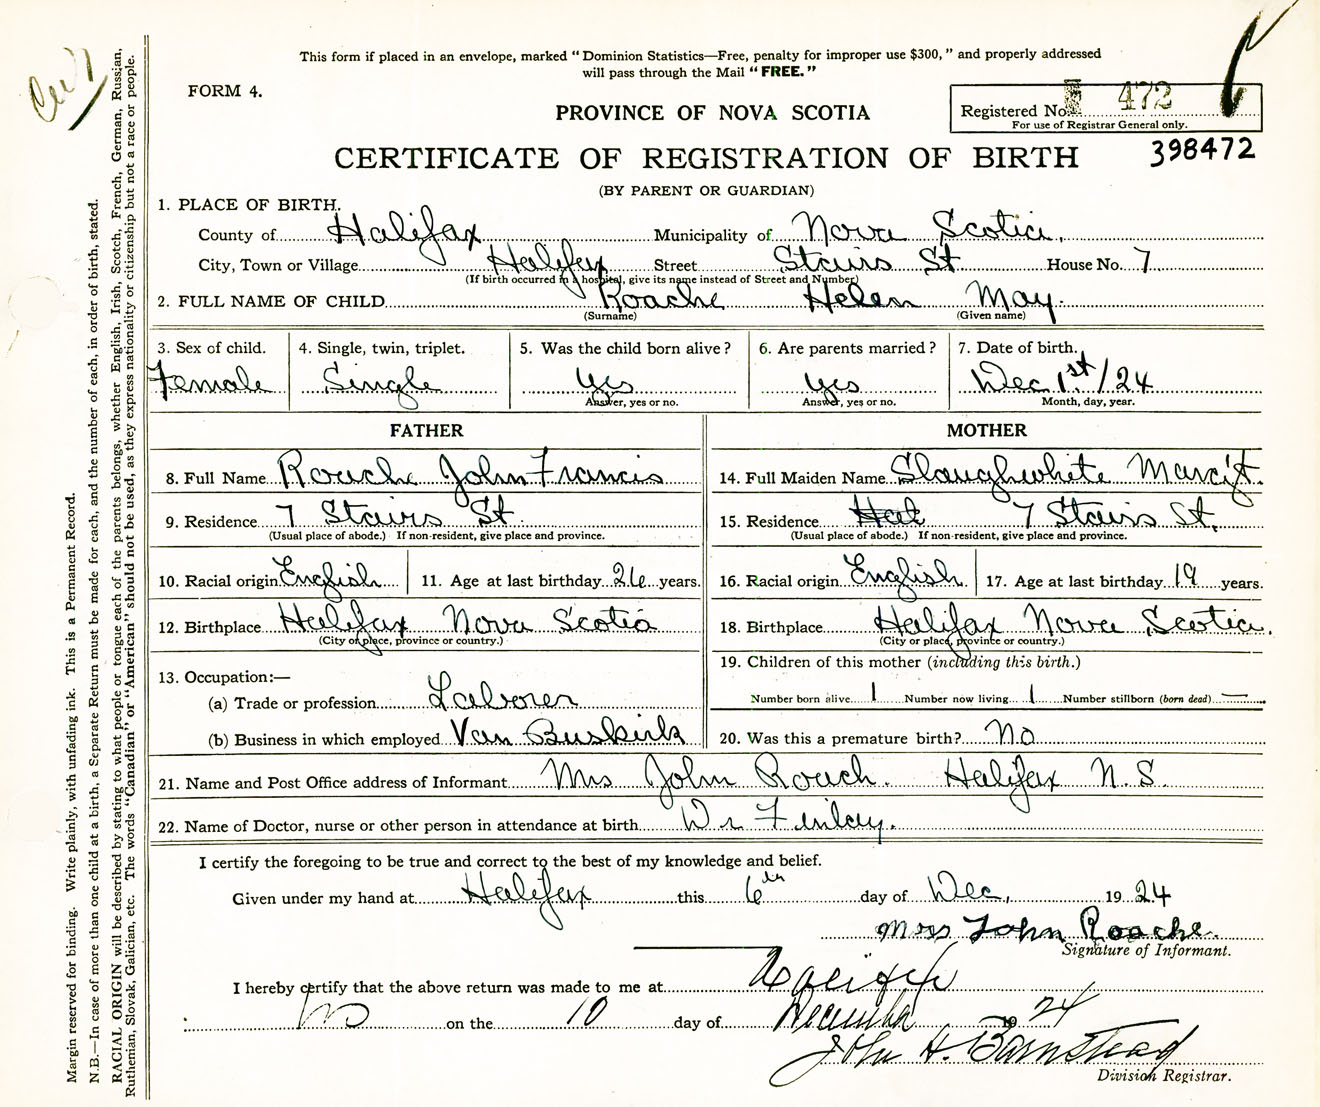 This form if placed in an envelope, marked "Dominion Statistics—Free, penalty for improper use $300," and properly addressed
will pass through the Mail "FREE."
FORM 4.
PROVINCE OF NOVA SCOTIA
Registered No. 472
For use of Registrar General only.
CERTIFICATE OF REGISTRATION OF BIRTH
398472
(BY PARENT OR GUARDIAN)
1. PLACE OF BIRTH.
County of Halifax Municipality of Nova Scotia,
City, Town or Village Halifax Street Stairs St House No. 7
(If birth occurred in a hospital, give its name instead of Street and Number)
2. FULL NAME OF CHILD Roache Helen May.
(Surname) (Given name)
3. Sex of child. 4. Single, twin, triplet. 5. Was the child born alive? 6. Are parents married? 7. Date of birth.
Female Single yes yes Dec 1st/24
Answer, yes or no. Answer, yes or no. Month, day, year.
FATHER MOTHER
8. Full Name Roache John Francis 14. Full Maiden Name Slaughwhite Marg't.
9. Residence 7 Stairs St. 15. Residence Hal 7 Stairs St.
(Usual place of abode.) If non-resident, give place and province. (Usual place of abode.) If non-resident, give place and province.
10. Racial origin English 11. Age at last birthday 26 years. 16. Racial origin English 17. Age at last birthday 19 years.
12. Birthplace Halifax Nova Scotia 18. Birthplace Halifax Nova Scotia.
(City or place, province or country.) (City or place, province or country.)
19. Children of this mother (including this birth.)
13. Occupation:—
(a) Trade or profession Laborer Number born alive 1 Number now living 1 Number stillborn (born dead) —
(b) Business in which employed Van Buskirk 20. Was this a premature birth? No
21. Name and Post Office address of Informant Mrs John Roach. Halifax N.S
22. Name of Doctor, nurse or other person in attendance at birth Dr Finlay.
I certify the foregoing to be true and correct to the best of my knowledge and belief.
Given under my hand at Halifax this 6th day of Dec, 1924
Mrs John Roache.
Signature of Informant.
I hereby certify that the above return was made to me at Halifax
NS on the 10 day of December 1924
John H. Barnstead
Division Registrar.
Margin reserved for binding. Write plainly, with unfading ink. This is a Permanent Record.
N.B.—In case of more than one child at a birth, a Separate Return must be made for each, and the number of each, in order of birth, stated.
RACIAL ORIGIN will be described by stating to what people or tongue each of the parents belongs, whether English, Irish, Scotch, French, German, Russian,
Ruthenian, Slovak, Galician, etc. The words "Canadian" or "American" should not be used, as they express nationality or citizenship but not a race or people.